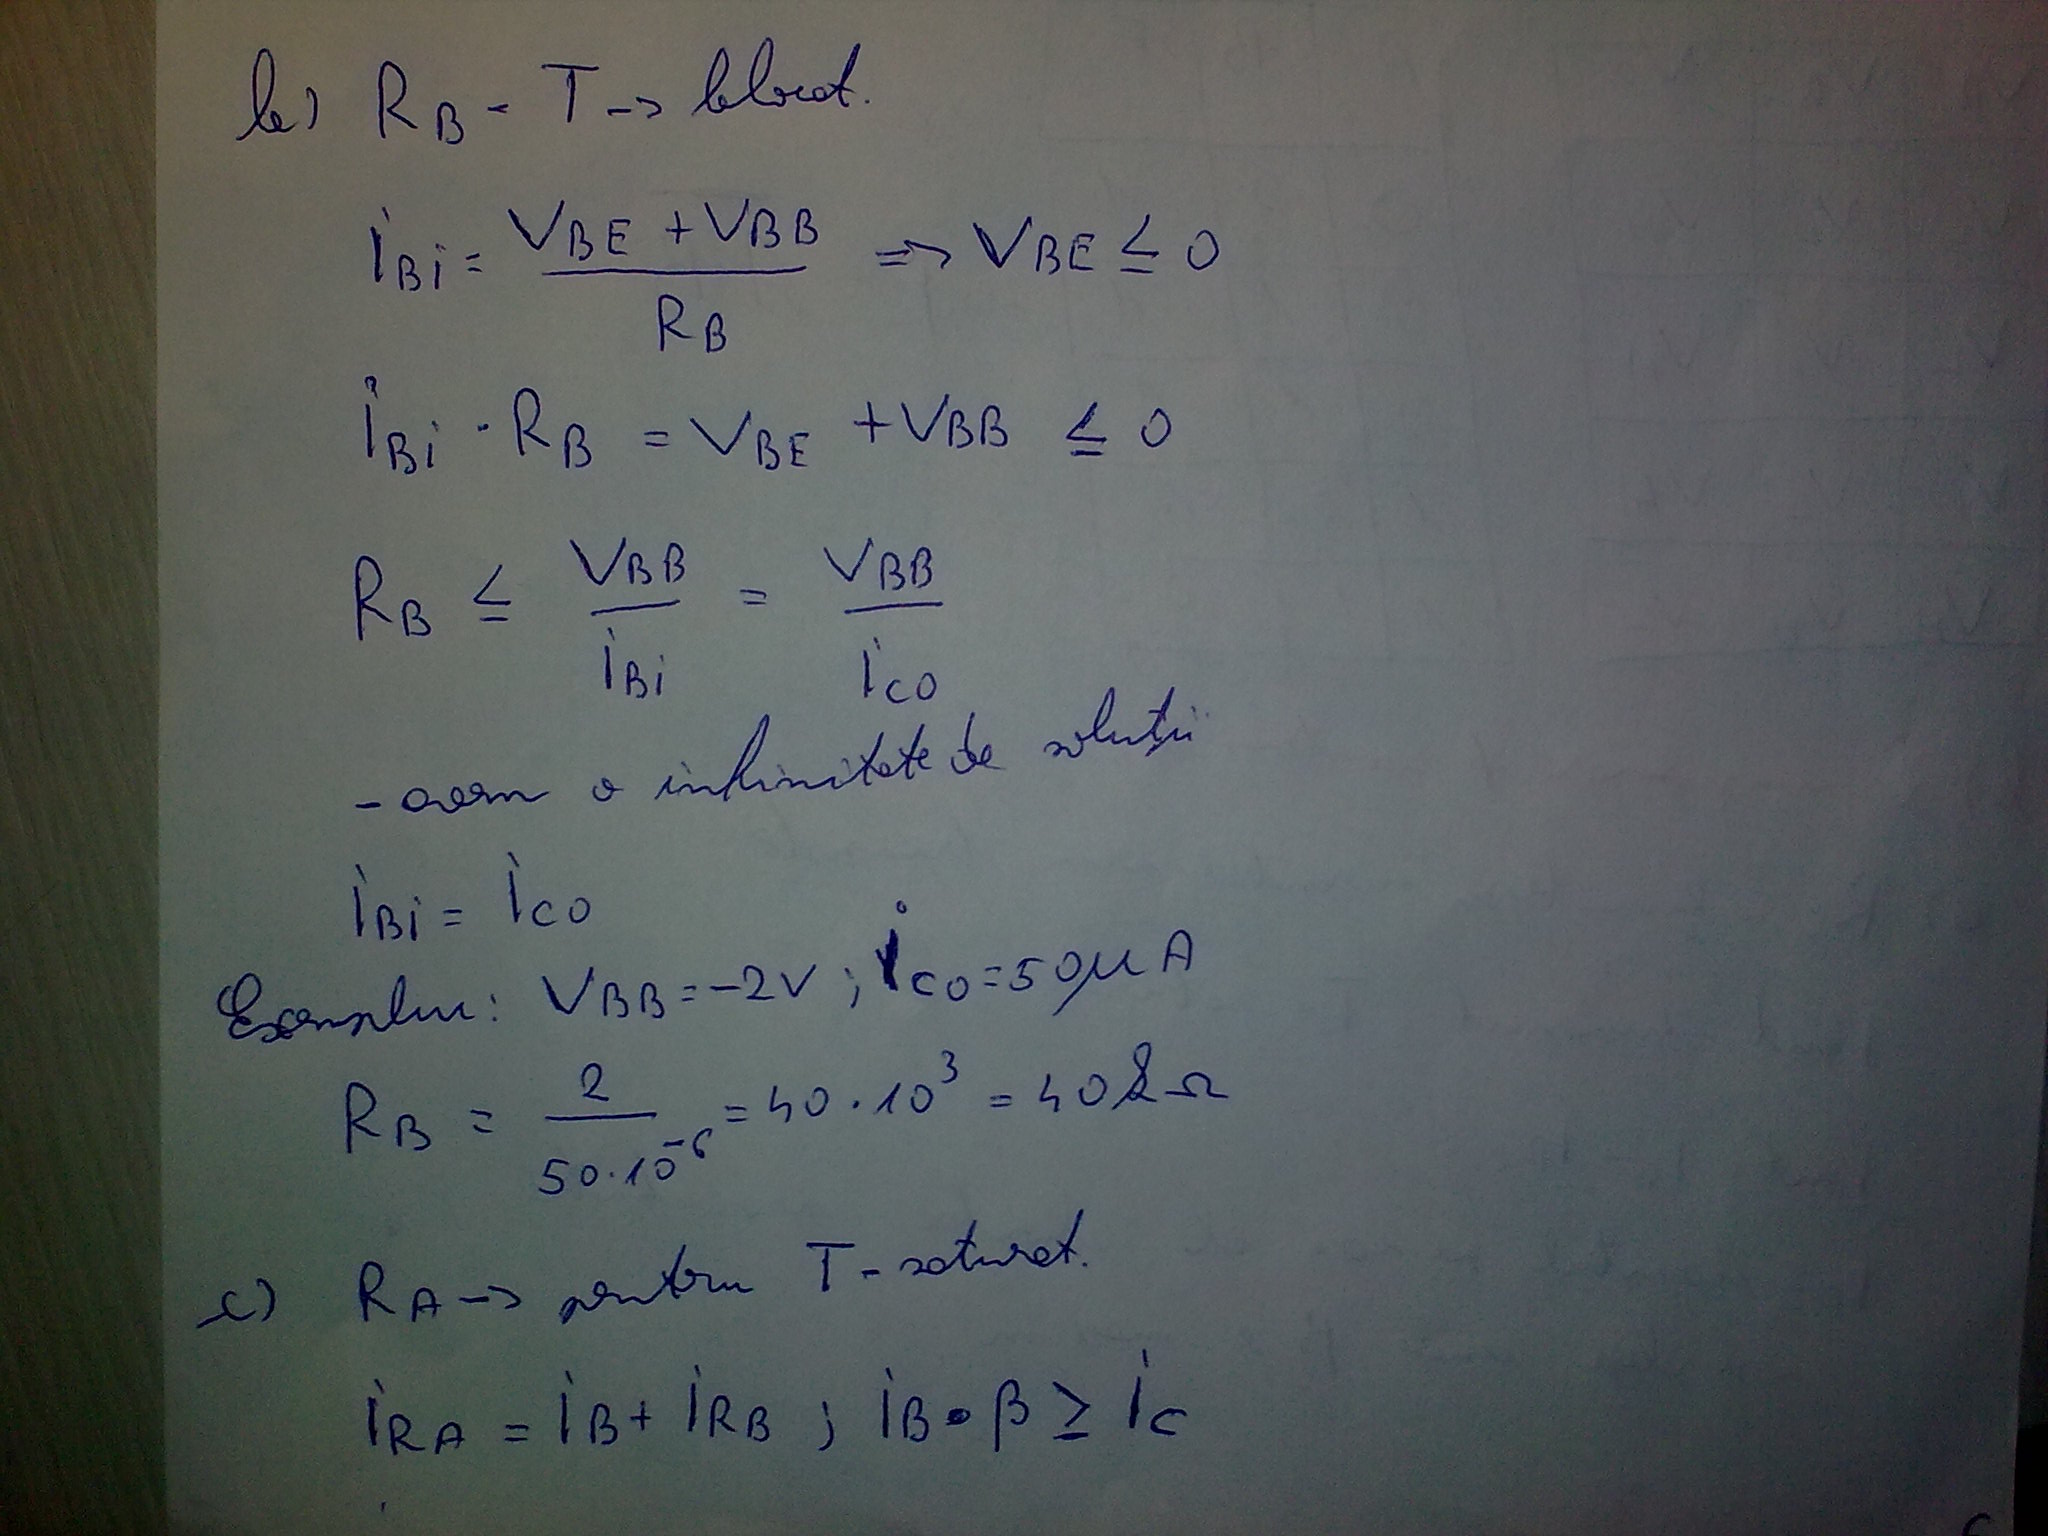 b) RB - T -> blocat.
iBi = (VBE + VBB) / RB => VBE ≤ 0
iBi · RB = VBE + VBB ≤ 0
RB ≤ VBB / iBi = VBB / iCO
- avem o infinitate de soluții
iBi = iCO
Exemplu: VBB = -2V ; iCO = 50μA
RB = 2 / 50·10^-6 = 40·10^3 = 40kΩ
c) RA -> pentru T - saturat.
iRA = iB + iRB ; iB · β ≥ iC